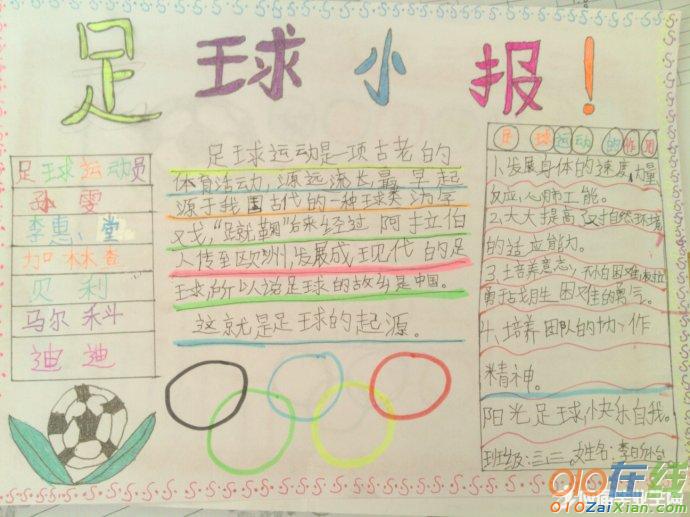 足球小报!
足球运动员
孙雯
李惠堂
加林查
贝利
马尔蒂斗
迪迪
足球运动是一项古老的
体育活动,源远流长最早起
源于我国古代的一种球类游
戏,"蹴鞠"后来经过阿拉伯
人传至欧洲,发展成现代的足
球,所以说足球的故乡是中国。
这就是足球的起源。
足球运动的作用
1.发展身体的速度,力量
反应,心肺功能。
2.大大提高对自然环境
的适应能力。
3.培养意志,不怕困难
勇于战胜困难的勇气。
4.培养团队的协作
精神。
阳光足球,快乐自我。
班级:三三 姓名:李
010在线
010ZaiXian.com